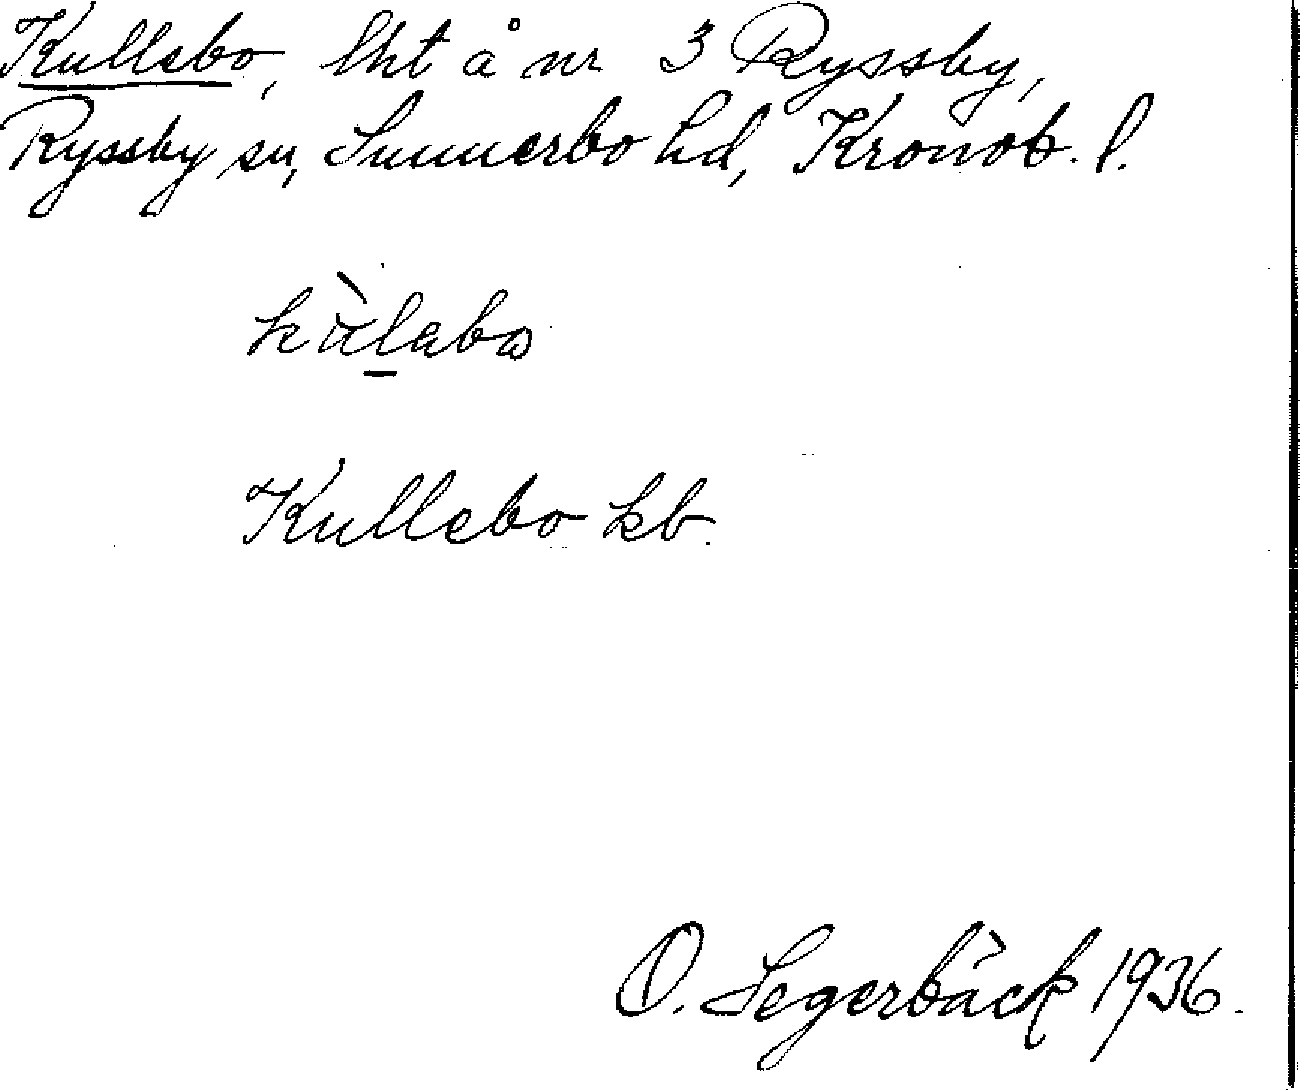 Kullebo, lht å nr 3 Ryssby,
Ryssby sn, Sunnerbo hd, Kronob. l.
kùlebo
Kullebo kb.
O. Segerbäck 1936.